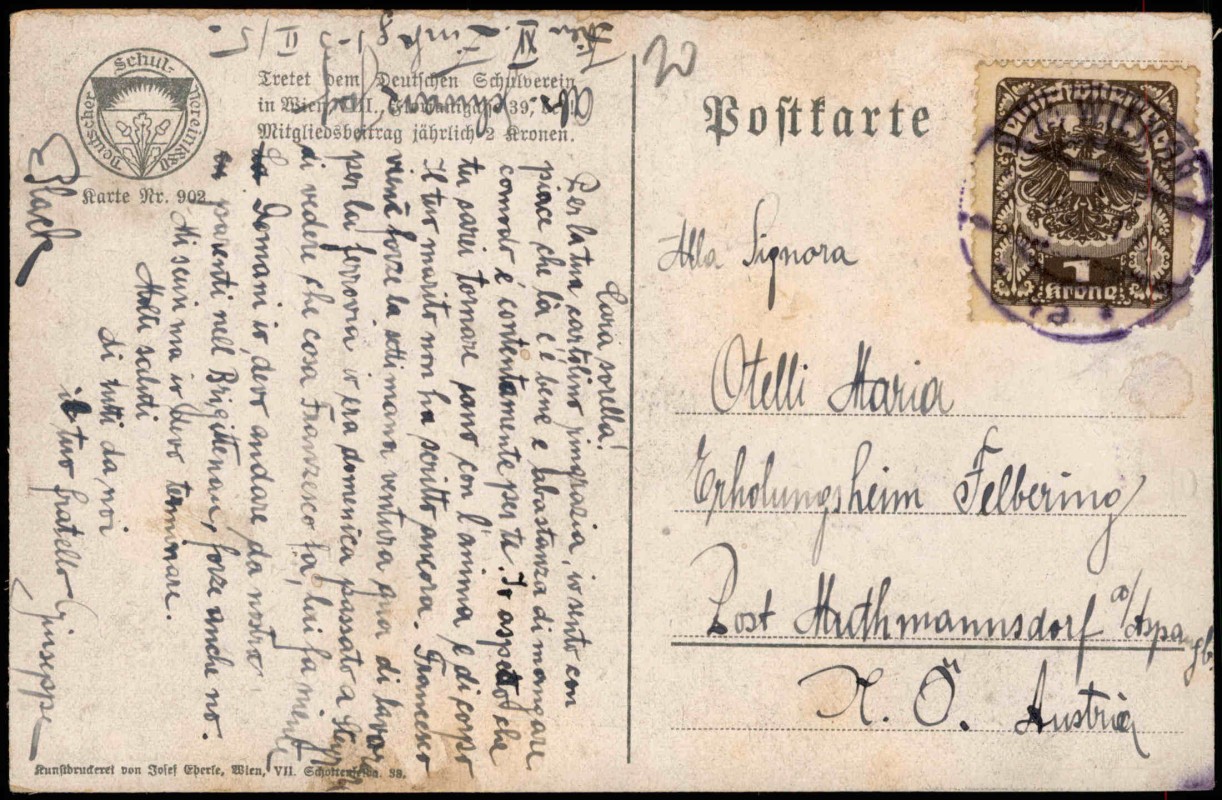 Schul-
Deutscher
Vereinsgau
Karte Nr. 902.
Tretet dem Deutschen Schulverein
in Wien VIII, 39,
Mitgliedsbeitrag jährlich 2 Kronen.
Wien
XI.
II/5.
Cara sorella!
Per la tua cartolina ringrazia, io sento con
piace che là c'è bene e abastanza di mangare
comodo è contentamente per te. Io aspetto che
tu sarei tornare sano con l'anima e di corpo
Il tuo marito non ha scritto ancora. Francesco
viene forze la settimana ventura qua di
per la ferrovia io era domenica passato a
di vedere che cosa Franzesco fa, lui fa niente
Domani io devo andare da nostro
parenti nell Brigittenau, forze anche no.
Mi scusi ma io devo terminare.
Molti saluti
di tutti da noi
il tuo fratello Giuseppe
Black
Kunstdruckerei von Josef Eberle, Wien, VII. Schottenfeldg. 38.
20
Postkarte
Deutschösterreich
1
Krone
WIEN
Alla Signora
Otelli Maria
Erholungsheim Felbering
Post Muthmannsdorf a/Aspangb.
N. Ö. Austria